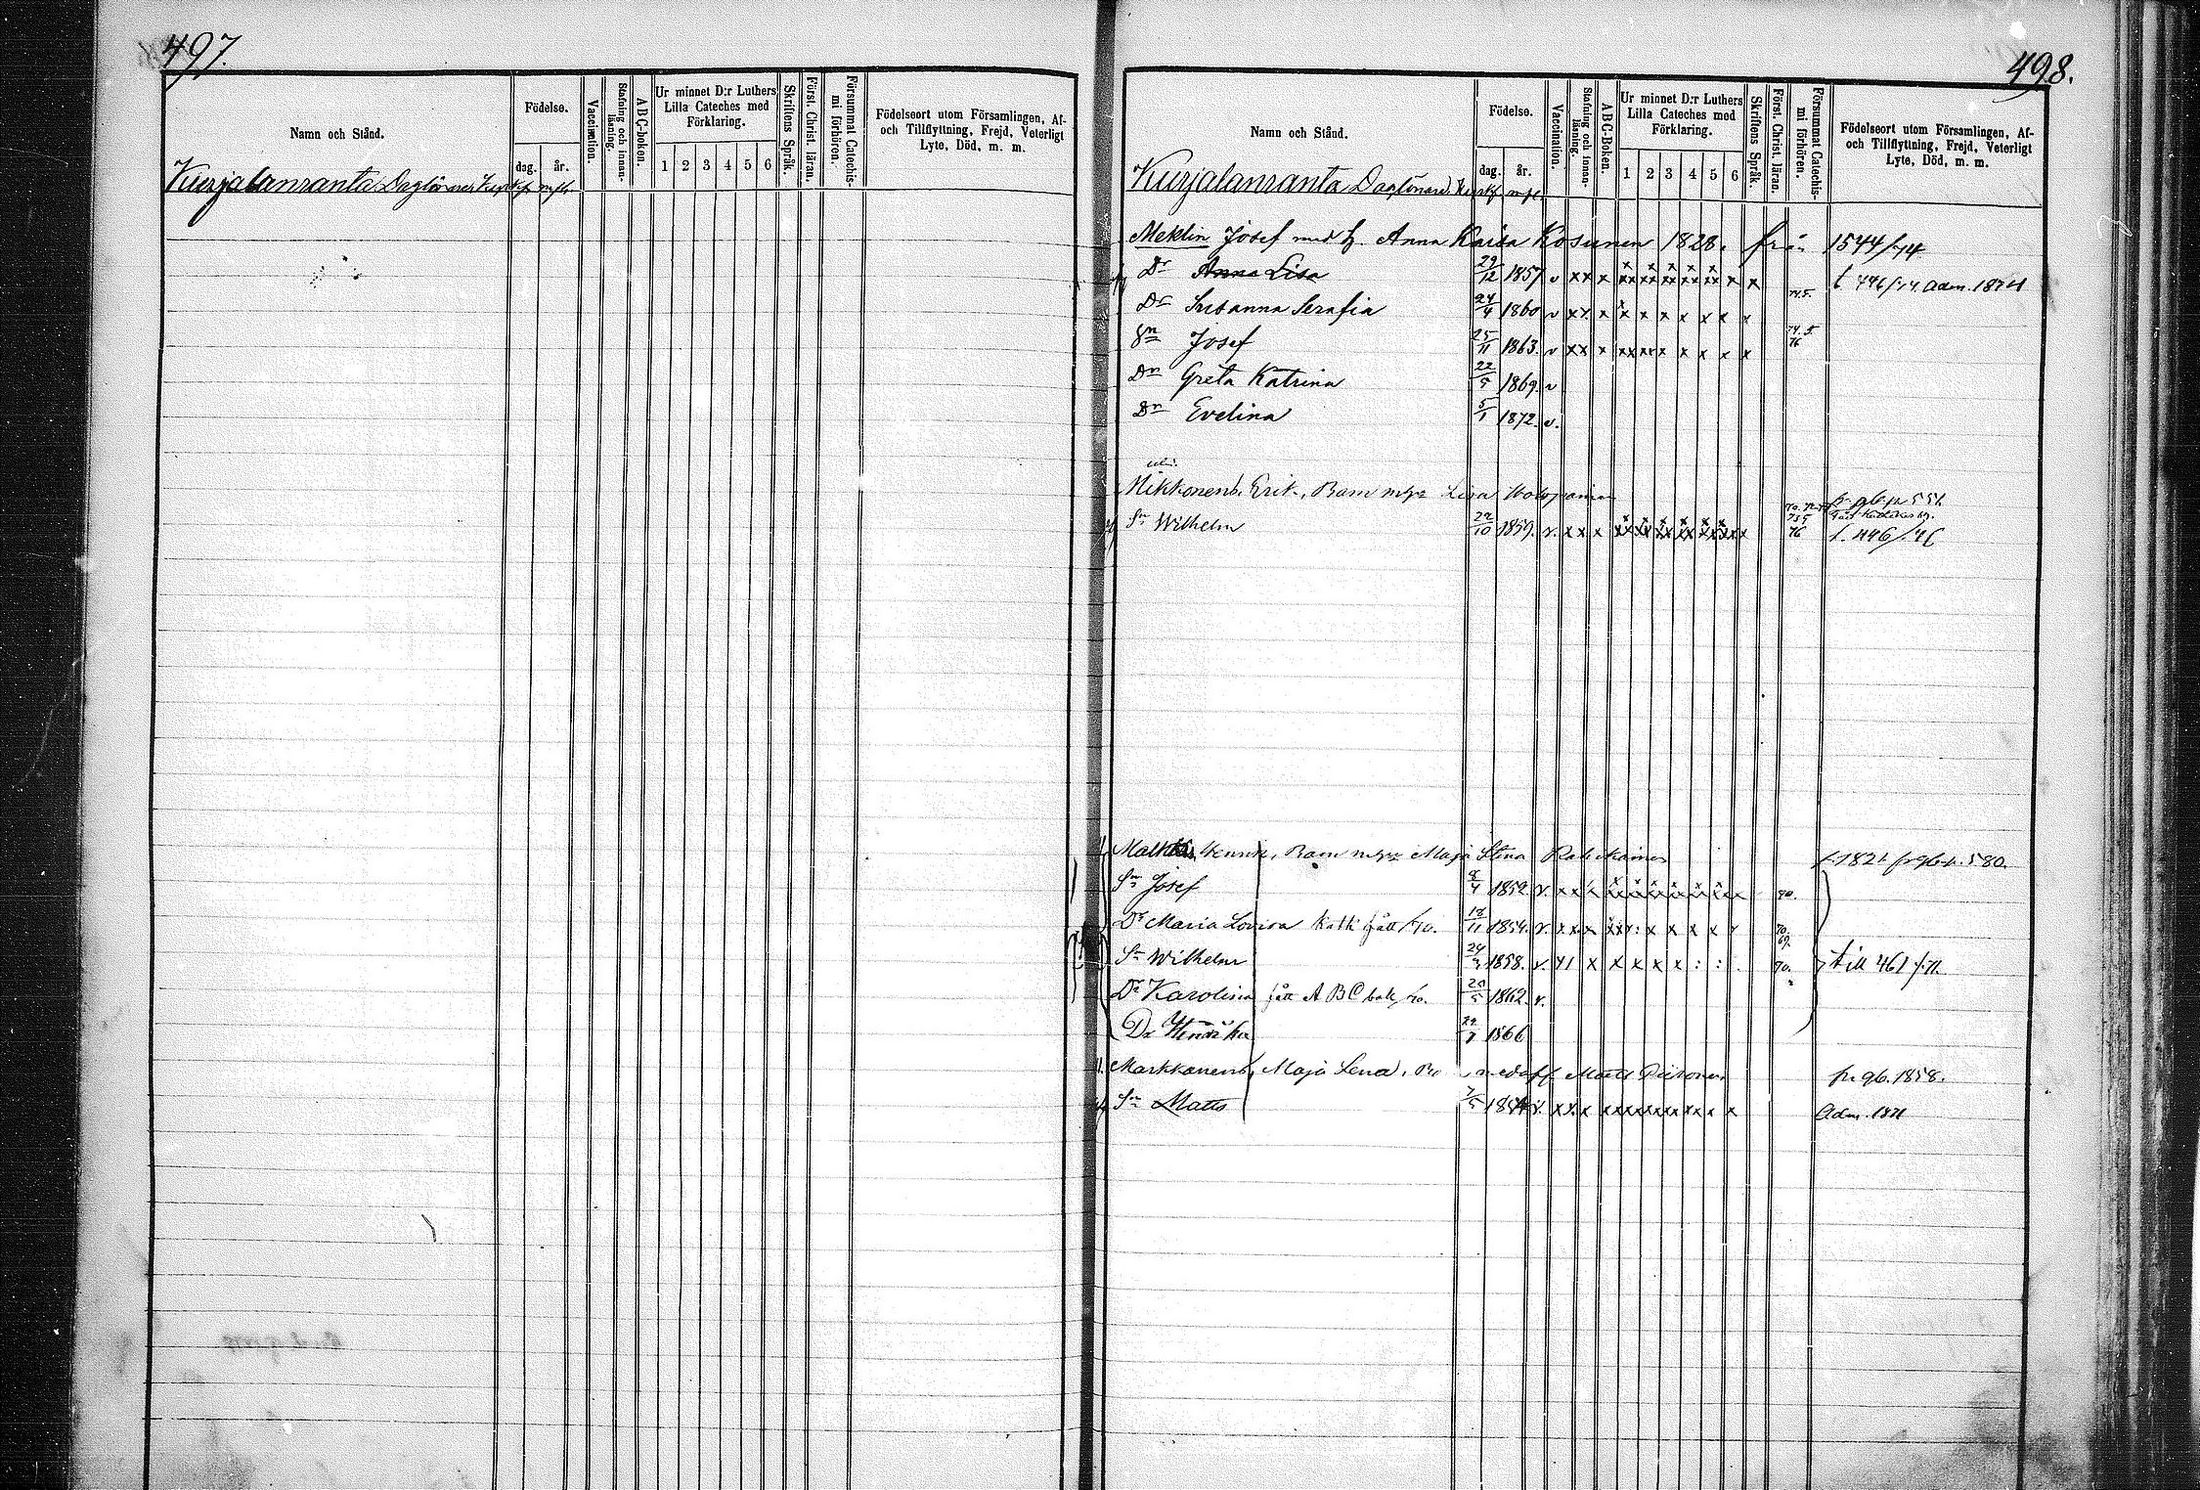 497.
Namn och Stånd.
Födelse.
dag. år.
Vaccination.
Stafning och innan-
läsning.
ABC-boken.
Ur minnet D:r Luthers
Lilla Cateches med
Förklaring.
1 2 3 4 5 6
Skriftens Språk.
Först. Christ. läran.
Försummat Catechis-
mi förhören.
Födelseort utom Församlingen, Af-
och Tillflyttning, Frejd, Veterligt
Lyte, Död, m. m.
Kurjalanranta
498.
Namn och Stånd.
Födelse.
dag. år.
Vaccination.
Stafning och innan-
läsning.
ABC-Boken.
Ur minnet D:r Luthers
Lilla Cateches med
Förklaring.
1 2 3 4 5 6
Skriftens Språk.
Först. Christ. läran.
Försummat Catechis-
mi förhören.
Födelseort utom Församlingen, Af-
och Tillflyttning, Frejd, Veterligt
Lyte, Död, m. m.
Kurjalanranta
Meklin Josef med h. Anna Kaisa Kosunen 1828. från 1544/74
Dr Anna Lisa 29/12 1857 v x x x x t 446/74 adm. 1874
Dr Susanna Serafia 24/4 1860 v x x x
Sn Josef 25/11 1863. v x x x 76
Dn Greta Katrina 22/5 1869. v
Dn Evelina 5/1 1872. v.
Mikkonen Erik, Barn Lisa
Sn Wilhelm 22/10 1859. v. x x x 76 t. 446/76
Henrik, Barn Maja Stina 580.
Sn Josef 8/4 1852. v. x x 70.
Dr Maria Lovisa fått /70. 18/11 1854. v. x x x 70.
Sn Wilhelm 24/3 1858. v. x x x x x 70. till 461/71.
Dr Karolina fått ABC bok /70. 5 1862. v.
Dr Henrika 1866
Markkanen, Maja Lena, Matts 1858.
Sn Matts 7/5 v. x x x Adm. 1871